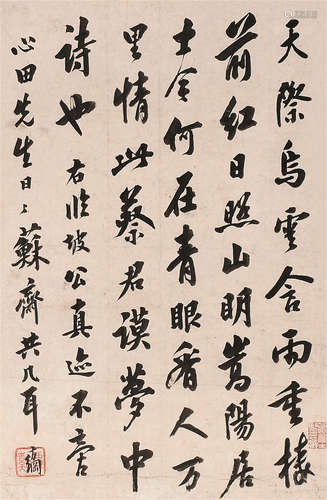 天際烏雲含雨重樓
前紅日照山明嵩陽居
士今何在青眼看人万
里情此蔡君謨夢中
詩也 右临坡公真迹不啻
心田先生日二蘇齋共几耳